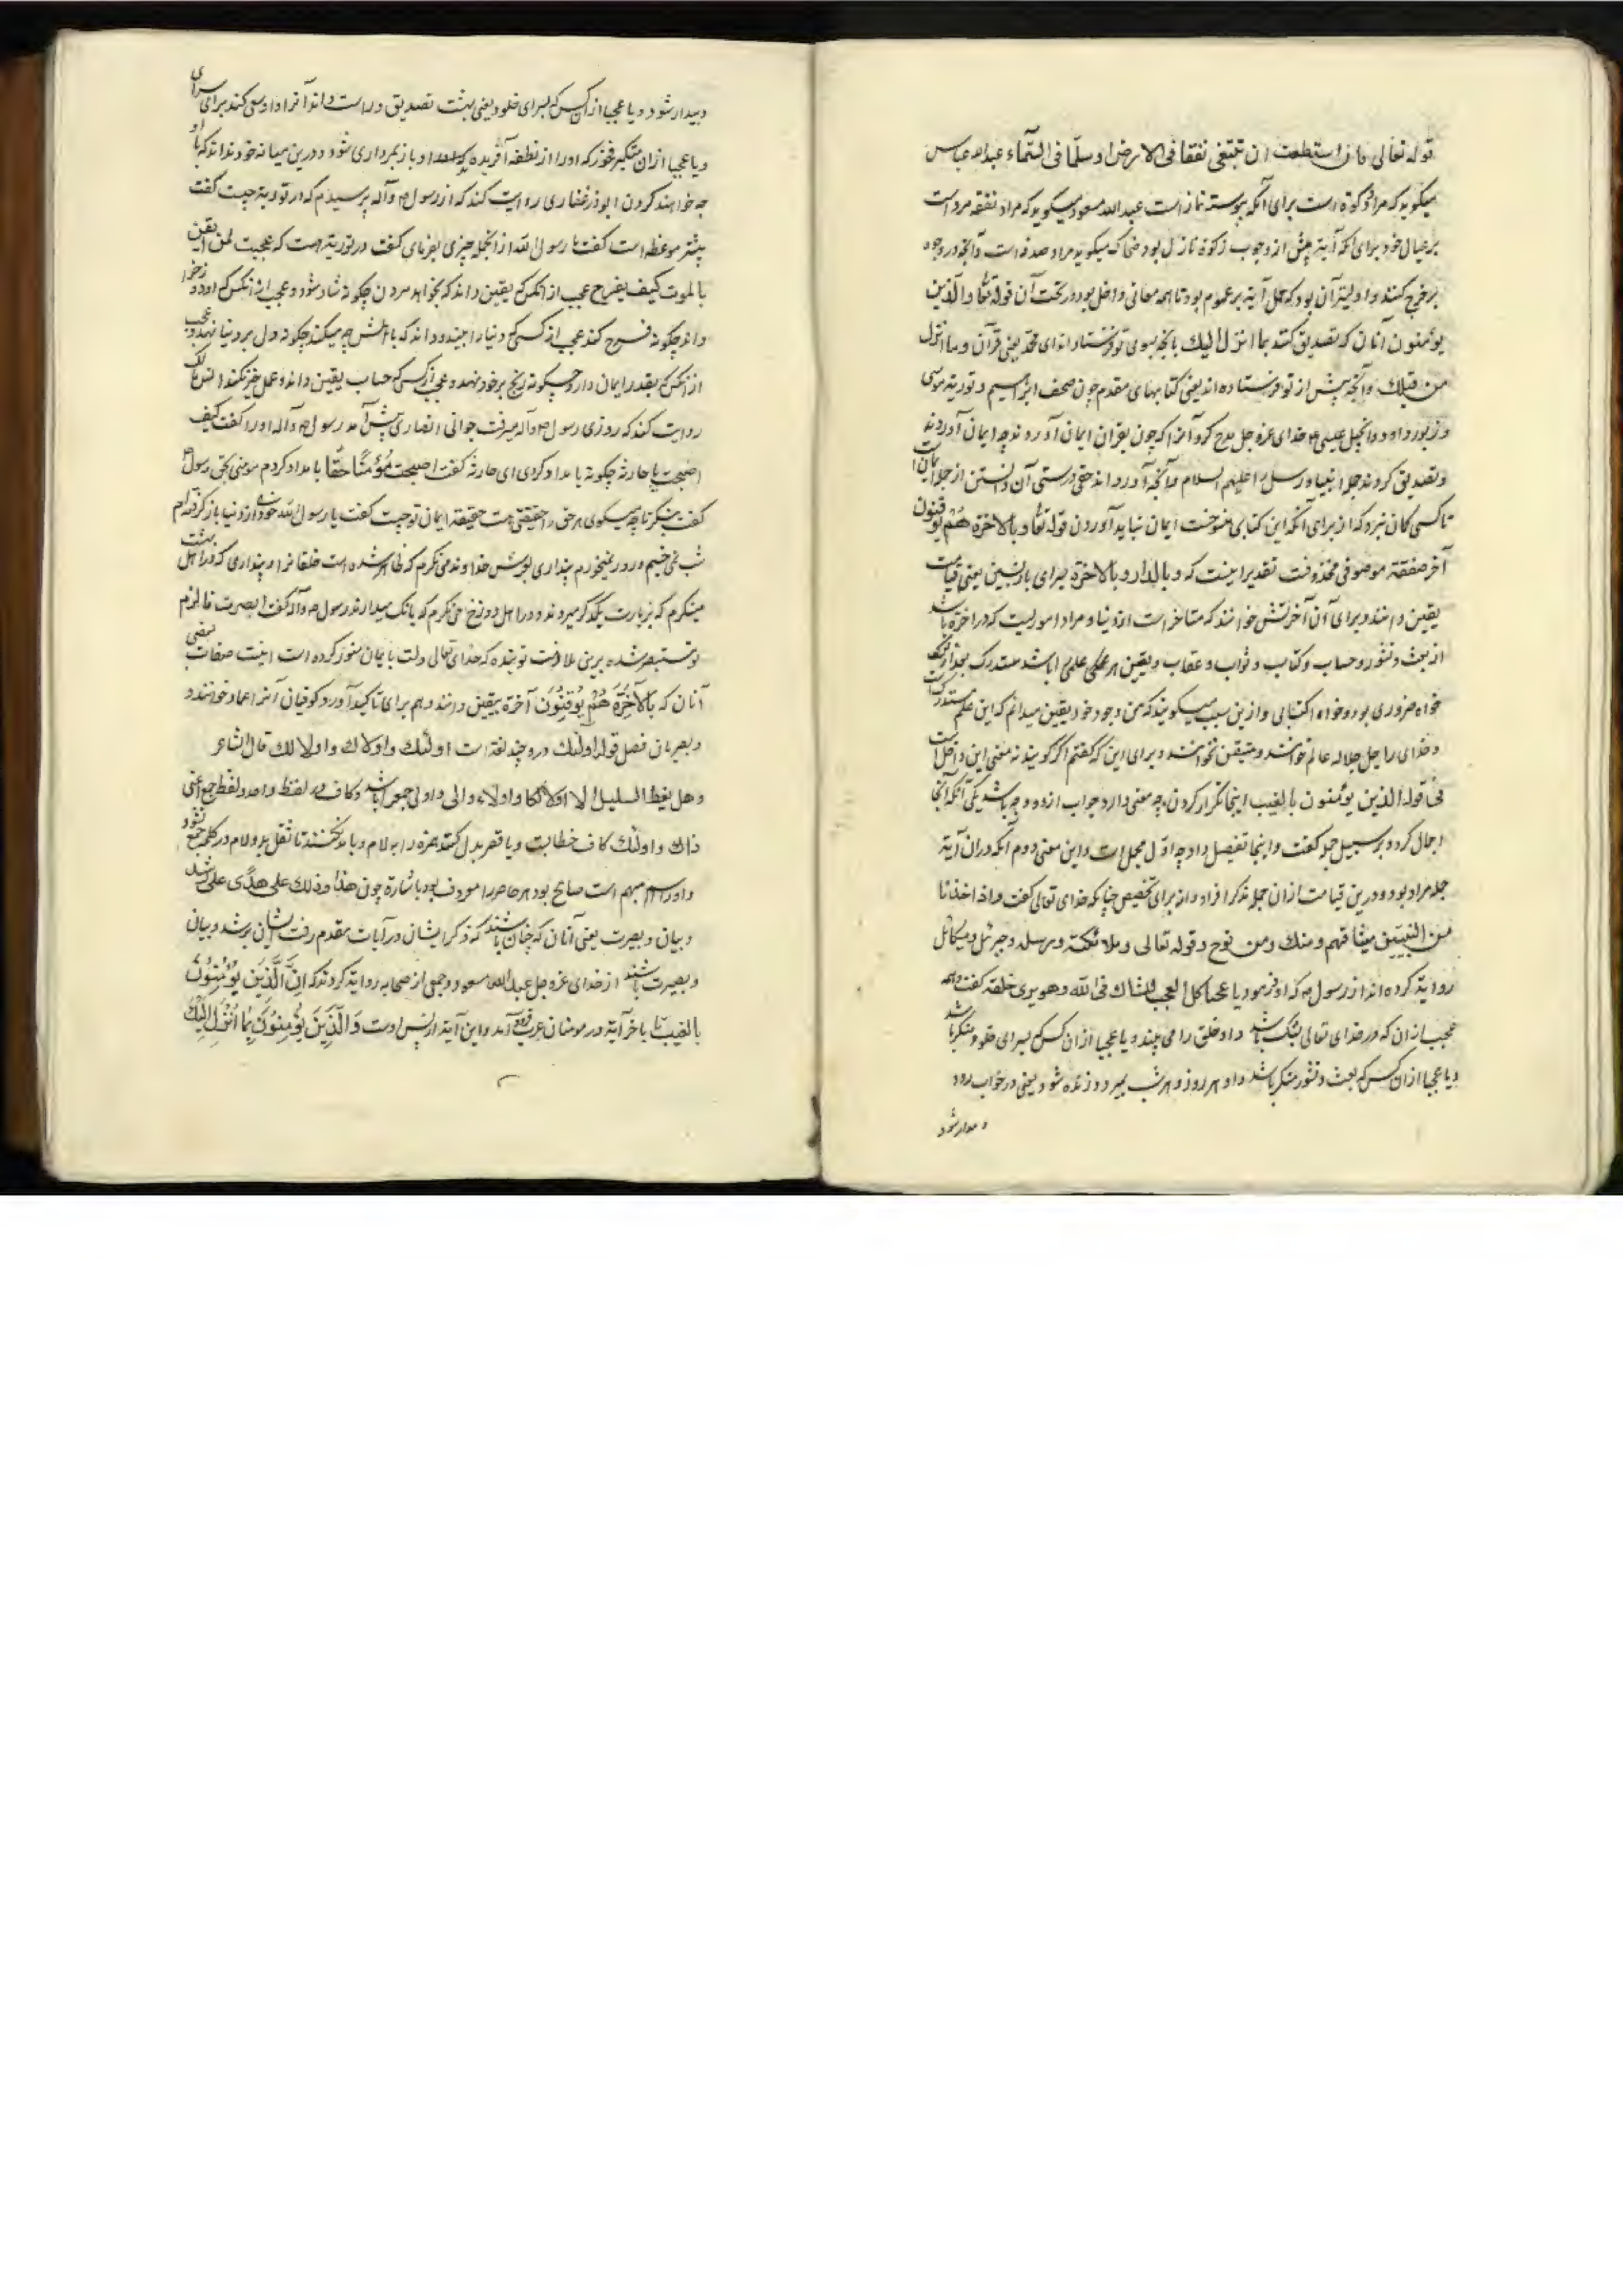 قوله تعالى فان استطعت ان تبتغی نفقا فی الارض او سلّما فی السّماء عبدالله عباس
میگوید که مراد زکوة است برای آنکه پیوسته نماز است عبدالله مسعود میگوید که مراد نفقه مرد است
بر عیال خود برای آنکه آیة پیش از وجوب زکوة نازل بود ضحاک میگوید مراد صدقه است و آنچه در وجوه
بر خرج کنند و اولیتر آن بود که حمل آیة بر عموم بود تا همه معانی داخل بود در تحت آن قوله تعا والذین
یؤمنون آنان که تصدیق کنند بما انزل الیک بآنچه بسوی تو فرستاده اند ای محمد یعنی قرآن وما انزل
من قبلک وآنچه پیش از تو فرستاده اند یعنی کتابهای مقدم چون صحف ابراهیم و توریة موسی
و زبور داود و انجیل عیسی خدای عزّ و جل مدح کرد آنرا که چون بقرآن ایمان آوردند چه ایمان آوردند
و تصدیق کردند جمله انبیا و رسل را علیهم السلام و آنچه آوردند حق و درستی آن دانستن از جمله ایمان است
تا کسی گمان نبرد که از برای آنکه این کتابی منسوخست ایمان نباید آوردن قوله تعا وبالاخرة هم یوقنون
آخرة صفت موصوفی محذوفست تقدیر اینست که وبالدار وبالاخرة سرای بازپسین یعنی قیامت
یقین دانند و برای آن آخرتش خوانند که متاخر است از دنیا و مراد امور است که در آخرة باشد
از بعث و نشور و حساب و کتاب و ثواب و عقاب و یقین هر علمی باشد مستدرک بعد از شک
خواه ضروری بود و خواه اکتسابی و ازین سبب میگویند که من وجود خود یقین میدانم که این علم مستدرک
و خدای را جل جلاله عالم خوانند و متیقن نخوانند و برای این که گفتم اگر گویند نه معنی این داخل است
فی قوله الذین یؤمنون بالغیب اینجا تکرار کردن چه معنی دارد جواب از دو وجه باشد یکی آنکه آنجا
اجمال کرد و بر سبیل جمله گفت و اینجا تفصیل داد چه اوّل مجمل است و این معنی دوم آنکه در آن آیة
جمله مراد بود و درین قیامت از آن جمله بذکر افراد داند برای تخصیص چنانکه خدای تعالی گفت واذ اخذنا
من النبیین میثاقهم ومنک ومن نوح وقوله تعالى وملائکته ورسله وجبرئل ومیکائل
روایة کرده اند از رسول که او فرمود یا عجبا کل العجب للشاک فی الله وهو یری خلقه گفت همه
عجب از آن که در خدای تعالی بشک باشد و او خلق را می بیند و یا عجبا از آن کس که سرای خلود منکر باشد
و یا عجبا از آن کس که بعث و نشور منکر باشد و او هر روز و هر شب بمیرد و زنده شود یعنی در خواب رود
و بیدار شود
و بیدار شود و یا عجبا از آن کس که بسرای خلود یعنی بهشت تصدیق و راست داند آنرا و او سعی کند برای سرای
و یا عجبا از آن متکبر فخور که او را از نطفه آفریده و او باز بمرداری شود و درین میانه خود نداند که با او
چه خواهند کردن ابوذر غفاری روایت کند که از رسول و آله پرسیدم که در توریة چیست گفت
بیشتر موعظه است گفت یا رسول الله از آنجمله چیزی بفرمای گفت در توریة هست که عجبت لمن ایقن
بالموت کیف یفرح عجب از آنکس که یقین داند که بخواهد مردن چگونه شاد شود و عجب از آنکس که او دوزخ را
داند چگونه فرح کند عجب از کسی که دنیا را بیند و داند که با اهلش چه میکند چگونه دل بر دنیا نهد و عجب
از آنکس که بقدر ایمان دارد چگونه رنج بر خود نهد و عجب از کسی که حساب یقین داند و عمل خیر نکند انس مالک
روایت کند که روزی رسول و آله میرفت جوانی انصاری پیش آمد رسول و آله او را گفت کیف
اصبحت یا حارثه چگونه بامداد کردی ای حارثه گفت اصبحت مؤمنا حقّا بامداد کردم مومنی بحق رسول
گفت بنگر تا چه میگوی هر حق را حقیقتی هست حقیقة ایمان تو چیست گفت یا رسول الله خود را از دنیا باز گرفته ام
شب نمی خسبم و روز نمیخورم پنداری بعرش خداوند می نگرم که ظاهر شده است خلقانرا و پنداری که در اهل بهشت
مینگرم که بزیارت یکدیگر میروند و در اهل دوزخ می نگرم که بانک میدارند رسول و آله گفت ابصرت فالزم
تو مستبصر شده برین ملازمت تو بنده که خدای تعالی دلت بایمان منوّر کرده است اینست صفات بعضی
آنان که بالآخرة هم یوقنون آخرة بیقین دانند و هم برای تاکید آورد و کوفیان آنرا عماد خوانند و
و بصریان فصل قوله اولئک درو چند لغة است اولئک واولاک واولالک قال الشاعر
وهل یعظ الضلیل الا اولالکا واولاء والی واولی جمع باشد و کاف در لفظ واحد و لفظ جمع اعنی
ذاک و اولئک کاف خطابست و یا قصر بدل کنند همزه را به لام و یا مد نکنند تا ثقل بر دو لام در کلمه جمع نشود
و او اسم مبهم است صالح بود هر حاضر را معروف بود باشارة چون هذا وذلک علی هدًی علی رشد
و بیان و بصیرت یعنی آنان که چنان باشند که ذکر ایشان در آیات مقدم رفت ایشان بر رشد و بیان
و بصیرت باشند از خدای عزّ و جل عبدالله مسعود و جمعی از صحابه روایة کردند که اِنّ الَّذینَ یُؤْمِنُونَ
بالغیب تا بآخر آیة در مومنان عرب آمد و این آیة از پس اوست وَالَّذِینَ یُؤْمِنُونَ بِمَا اُنْزِلَ اِلَیْکَ